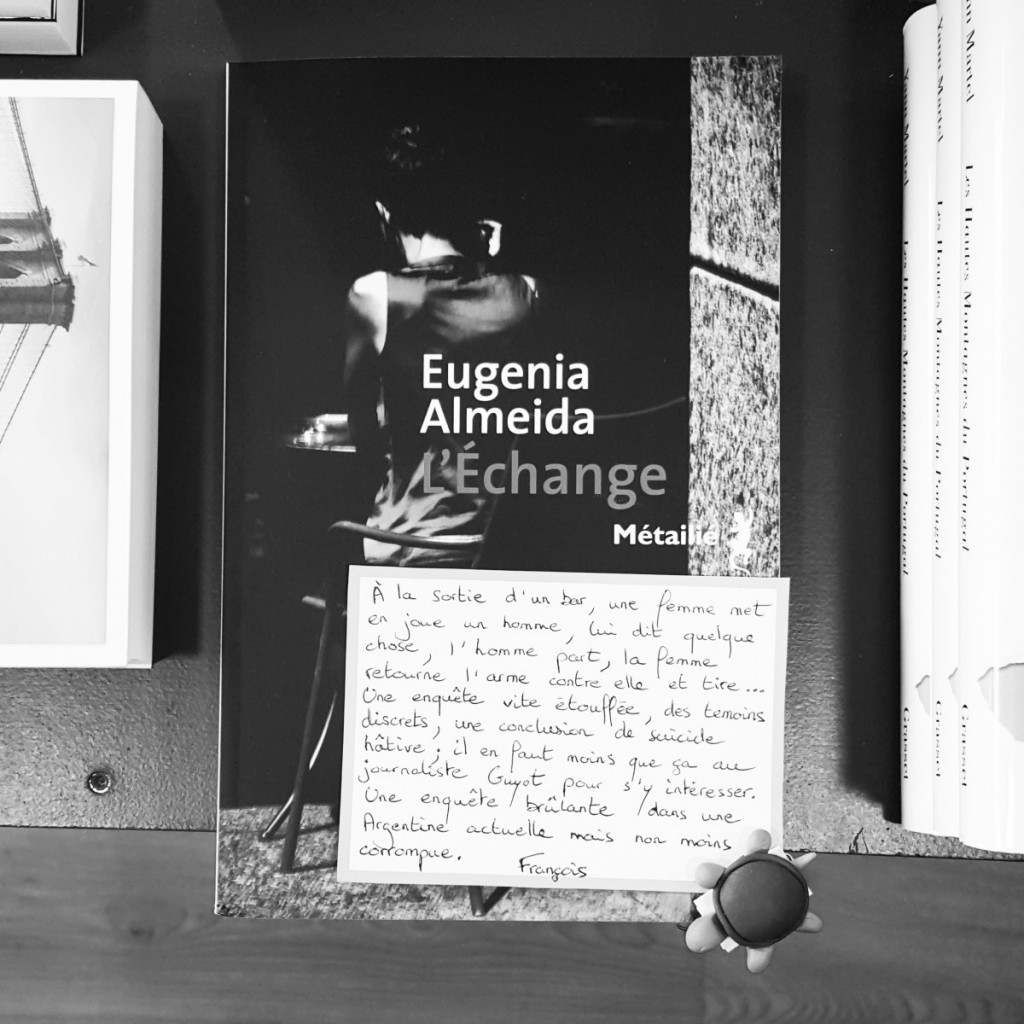 Eugenia
Almeida
L'Échange
Métailié
À la sortie d'un bar, une femme met
en joue un homme, lui dit quelque
chose, l'homme part, la femme
retourne l'arme contre elle et tire...
Une enquête vite étouffée, des témoins
discrets, une conclusion de suicide
hâtive ; il en faut moins que ça au
journaliste Guyot pour s'y intéresser.
Une enquête brûlante dans une
Argentine actuelle mais non moins
corrompue.
François
Yann Martel Les Hautes Montagnes du Portugal Grasset
Yann Martel Les Hautes Montagnes du Portugal Grasset
Yann Martel Les Hautes Montagnes du Portugal Grasset